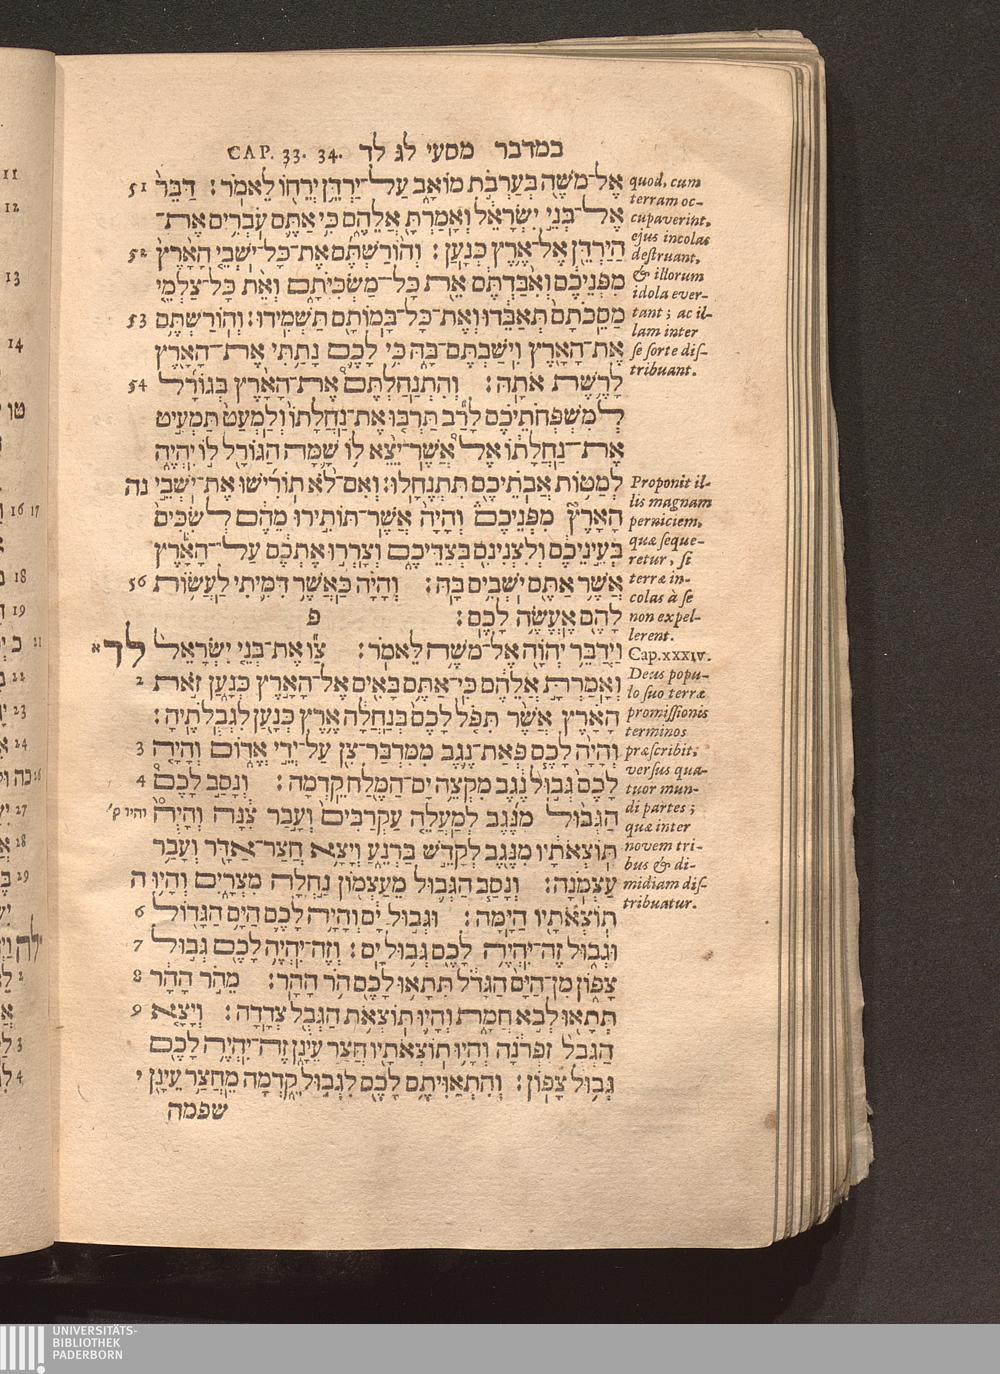 CAP. 33. 34. במדבר מסעי לג לד
אֶל־מֹשֶׁה בְּעַרְבֹת מוֹאָב עַל־יַרְדֵּן יְרֵחוֹ לֵאמֹר׃ דַּבֵּר 51
אֶל־בְּנֵי יִשְׂרָאֵל וְאָמַרְתָּ אֲלֵהֶם כִּי אַתֶּם עֹבְרִים אֶת־
הַיַּרְדֵּן אֶל־אֶרֶץ כְּנָעַן׃ וְהוֹרַשְׁתֶּם אֶת־כָּל־יֹשְׁבֵי הָאָרֶץ 52
מִפְּנֵיכֶם וְאִבַּדְתֶּם אֵת כָּל־מַשְׂכִּיֹּתָם וְאֵת כָּל־צַלְמֵי
מַסֵּכֹתָם תְּאַבֵּדוּ וְאֶת־כָּל־בָּמוֹתָם תַּשְׁמִידוּ׃ וְהוֹרַשְׁתֶּם 53
אֶת־הָאָרֶץ וִישַׁבְתֶּם־בָּהּ כִּי לָכֶם נָתַתִּי אֶת־הָאָרֶץ
לָרֶשֶׁת אֹתָהּ׃ וְהִתְנַחַלְתֶּם אֶת־הָאָרֶץ בְּגוֹרָל 54
לְמִשְׁפְּחֹתֵיכֶם לָרַב תַּרְבּוּ אֶת־נַחֲלָתוֹ וְלַמְעַט תַּמְעִיט
אֶת־נַחֲלָתוֹ אֶל אֲשֶׁר־יֵצֵא לוֹ שָׁמָּה הַגּוֹרָל לוֹ יִהְיֶה
לְמַטּוֹת אֲבֹתֵיכֶם תִּתְנֶחָלוּ׃ וְאִם־לֹא תוֹרִישׁוּ אֶת־יֹשְׁבֵי נה
הָאָרֶץ מִפְּנֵיכֶם וְהָיָה אֲשֶׁר־תּוֹתִירוּ מֵהֶם לְשִׂכִּים
בְּעֵינֵיכֶם וְלִצְנִינִם בְּצִדֵּיכֶם וְצָרְרוּ אֶתְכֶם עַל־הָאָרֶץ
אֲשֶׁר אַתֶּם יֹשְׁבִים בָּהּ׃ וְהָיָה כַּאֲשֶׁר דִּמִּיתִי לַעֲשׂוֹת 56
לָהֶם אֶעֱשֶׂה לָכֶם׃ פ
וַיְדַבֵּר יְהֹוָה אֶל־מֹשֶׁה לֵּאמֹר׃ צַו אֶת־בְּנֵי יִשְׂרָאֵל לד א
וְאָמַרְתָּ אֲלֵהֶם כִּי־אַתֶּם בָּאִים אֶל־הָאָרֶץ כְּנָעַן זֹאת 2
הָאָרֶץ אֲשֶׁר תִּפֹּל לָכֶם בְּנַחֲלָה אֶרֶץ כְּנַעַן לִגְבֻלֹתֶיהָ׃
וְהָיָה לָכֶם פְּאַת־נֶגֶב מִמִּדְבַּר־צִן עַל־יְדֵי אֱדוֹם וְהָיָה 3
לָכֶם גְּבוּל נֶגֶב מִקְצֵה יָם־הַמֶּלַח קֵדְמָה׃ וְנָסַב לָכֶם 4
הַגְּבוּל מִנֶּגֶב לְמַעֲלֵה עַקְרַבִּים וְעָבַר צִנָה וְהָיָה והיו ק׳
תּוֹצְאֹתָיו מִנֶּגֶב לְקָדֵשׁ בַּרְנֵעַ וְיָצָא חֲצַר־אַדָּר וְעָבַר
עַצְמֹנָה׃ וְנָסַב הַגְּבוּל מֵעַצְמוֹן נַחְלָה מִצְרָיִם וְהָיוּ ה
תוֹצְאֹתָיו הַיָּמָּה׃ וּגְבוּל יָם וְהָיָה לָכֶם הַיָּם הַגָּדוֹל 6
וּגְבוּל זֶה־יִהְיֶה לָכֶם גְּבוּל יָם׃ וְזֶה־יִהְיֶה לָכֶם גְּבוּל 7
צָפוֹן מִן־הַיָּם הַגָּדֹל תְּתָאוּ לָכֶם הֹר הָהָר׃ מֵהֹר הָהָר 8
תְּתָאוּ לְבֹא חֲמָת וְהָיוּ תּוֹצְאֹת הַגְּבֻל צְדָדָה׃ וְיָצָא 9
הַגְּבֻל זִפְרֹנָה וְהָיוּ תוֹצְאֹתָיו חֲצַר עֵינָן זֶה־יִהְיֶה לָכֶם
גְּבוּל צָפוֹן׃ וְהִתְאַוִּיתֶם לָכֶם לִגְבוּל קֵדְמָה מֵחֲצַר עֵינָן י
שפמה
quod, cum
terram oc-
cupaverint,
ejus incolas
destruant,
& illorum
idola ever-
tant; ac il-
lam inter
se sorte dis-
tribuant.
Proponit il-
lis magnam
perniciem,
quæ seque-
retur, si
terræ in-
colas à se
non expel-
lerent.
Cap.xxxiv.
Deus popu-
lo suo terræ
promissionis
terminos
præscribit,
versus qua-
tuor mun-
di partes;
quæ inter
novem tri-
bus & di-
midiam dis-
tribuatur.
11
12
13
14
טו
16 17
18
19
21
22
23
24
26
27
28
29
לה
2
3
4
UNIVERSITÄTS-
BIBLIOTHEK
PADERBORN